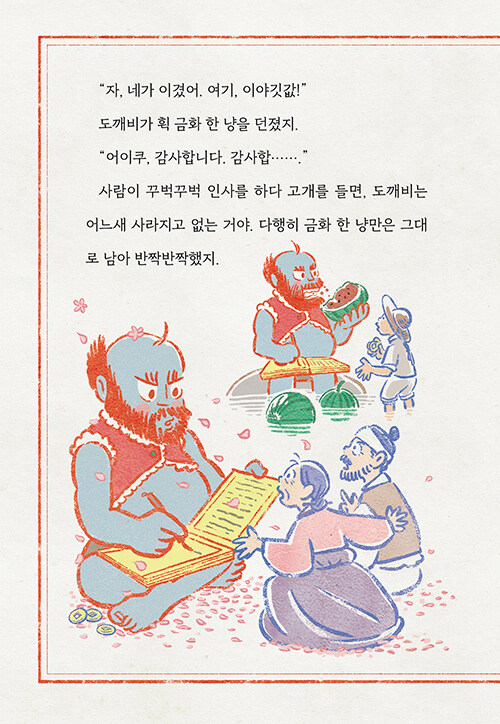 “자, 네가 이겼어. 여기, 이야깃값!”
도깨비가 획 금화 한 냥을 던졌지.
“어이쿠, 감사합니다. 감사합…….”
사람이 꾸벅꾸벅 인사를 하다 고개를 들면, 도깨비는
어느새 사라지고 없는 거야. 다행히 금화 한 냥만은 그대
로 남아 반짝반짝했지.